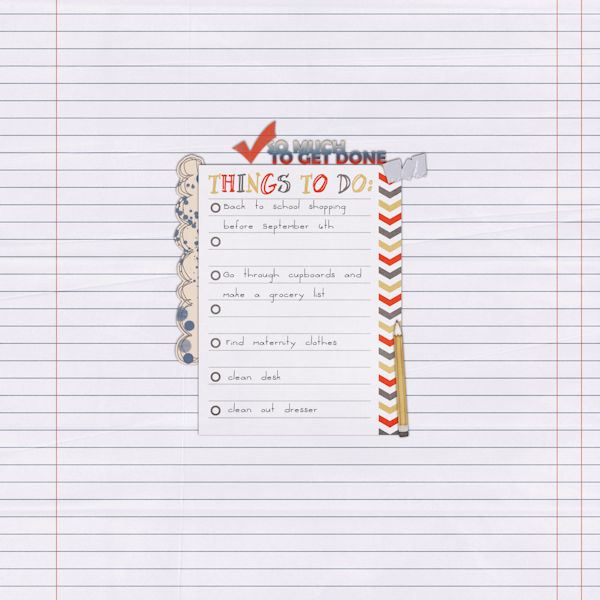 SO MUCH
TO GET DONE
THINGS TO DO:
Back to school shopping
before September 6th
Go through cupboards and
make a grocery list
Find maternity clothes
clean desk
clean out dresser